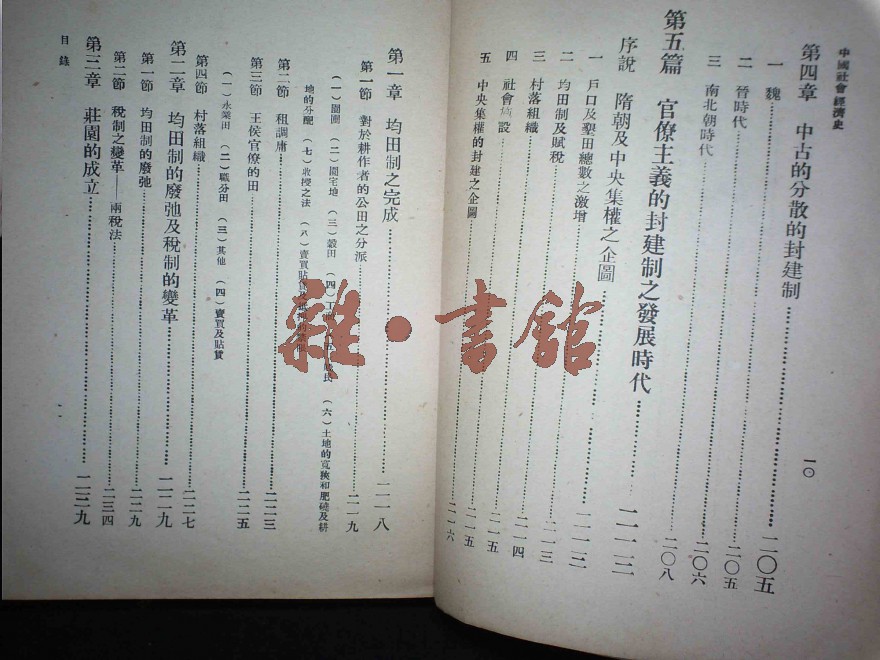 中國社會經濟史
一〇
第四章　中古的分散的封建制……二〇五
一　魏……二〇五
二　晉時代……二〇五
三　南北朝時代……二〇六
第五篇　官僚主義的封建制之發展時代……二〇八
序說　隋朝及中央集權之企圖……二一二
一　戶口及墾田總數之激增……二一二
二　均田制及賦稅……二一三
三　村落組織……二一四
四　社會施設……二一五
五　中央集權的封建之企圖……二一五
二一六
第一章　均田制之完成……二一八
第一節　對於耕作者的公田之分派……二一九
（一）園圃　（二）園宅地　（三）穀田　（四）　（六）土地的寬狹和肥磽及耕
地的分配　（七）收授之法　（八）賣買貼賃及
第二節　租調庸……二二三
第三節　王侯官僚的田……二二五
（一）永業田　（二）職分田　（三）其他　（四）賣買及貼賃
第四節　村落組織……二二七
第二章　均田制的廢弛及稅制的變革……二二九
第一節　均田制的廢弛……二二九
第二節　稅制之變革——兩稅法……二三四
第三章　莊園的成立……二三九
目錄
一一
雜·書館